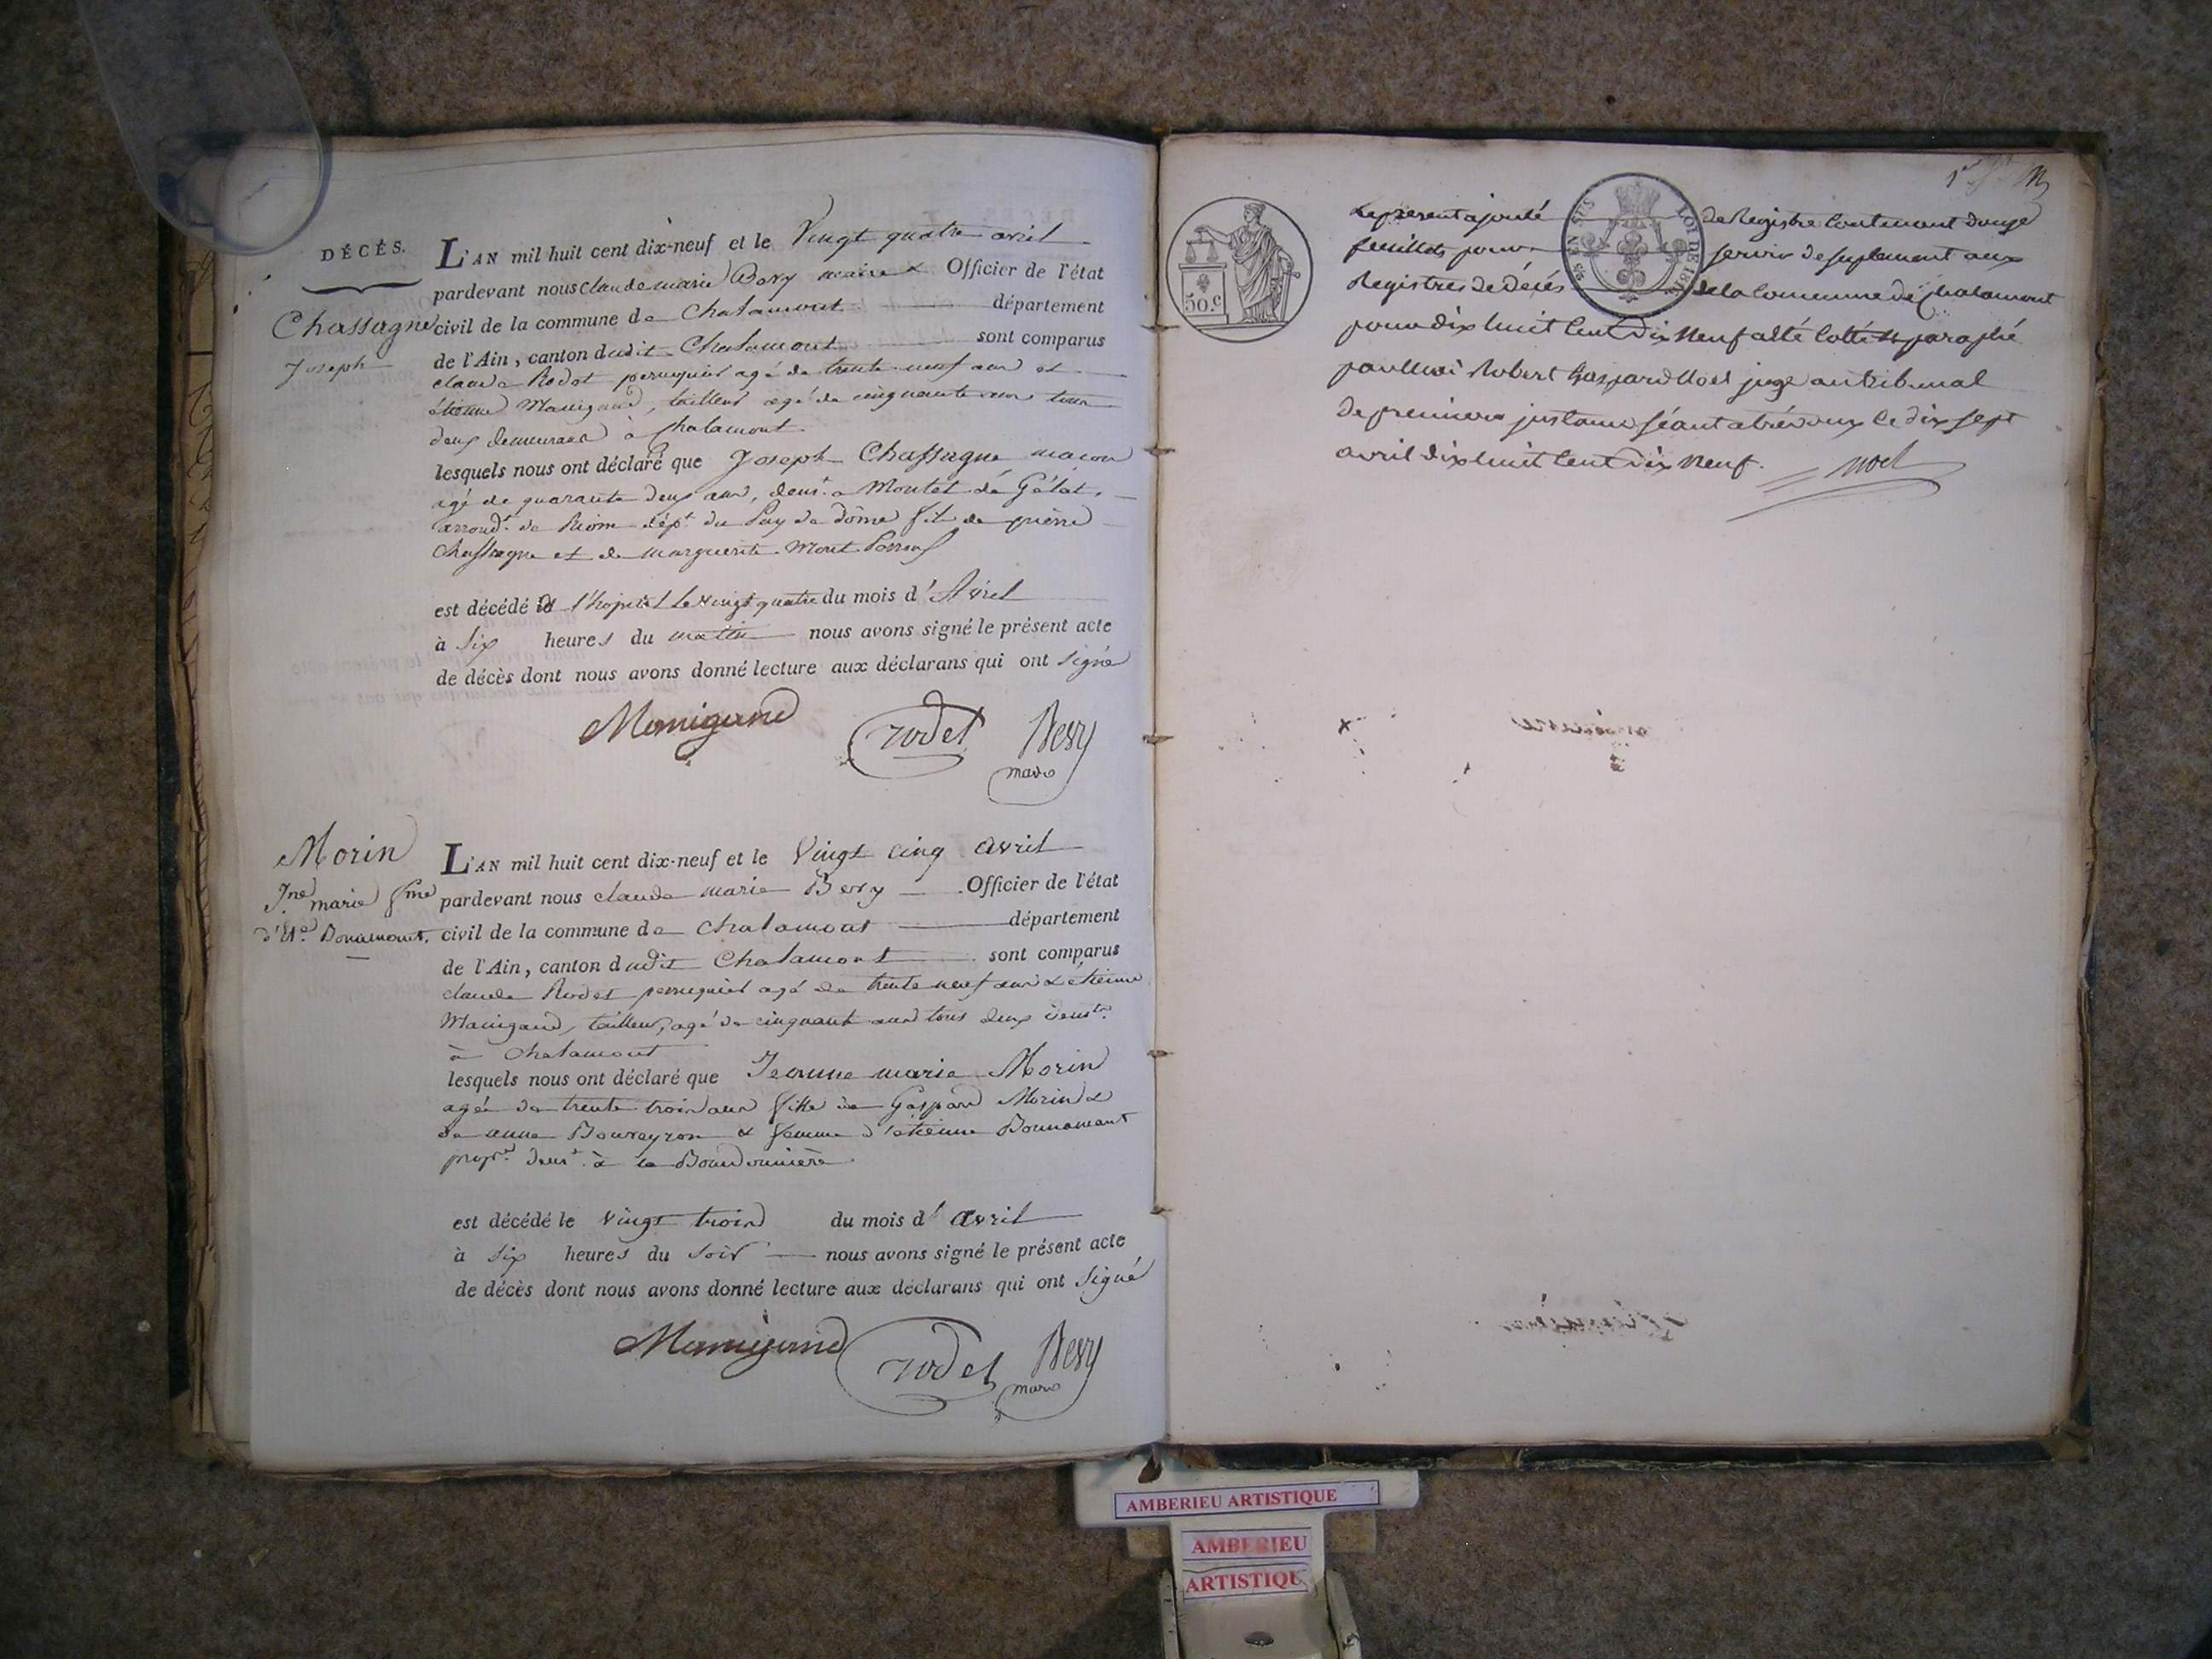 DÉCÈS.
Chassagne
Joseph
L'AN mil huit cent dix-neuf et le Vingt quatre avril
pardevant nous claude marie Bevy maire & Officier de l'état
civil de la commune de Chalamont département
de l'Ain, canton dudit Chalamont sont comparus
claude Rodet perruquier agé de trente neuf ans et
étienne Manigand, tailleur agé de cinquante ans tous
deux demeurans à Chalamont
lesquels nous ont déclaré que Joseph Chassagne macon
agé de quarante deux ans, demt. a Montel de Gélat,
arrondt. de Riom dépt. du Puy de dôme fils de pierre
Chassagne et de marguerite Mont
est décédé à l'hopital le vingt quatre du mois d'Avril
à six heures du matin nous avons signé le présent acte
de décès dont nous avons donné lecture aux déclarans qui ont signé
Manigand rodet Bevy
maire
Morin
Jne marie fme
d'Et. Bonamont.
L'AN mil huit cent dix-neuf et le Vingt cinq avril
pardevant nous claude marie Bevy Officier de l'état
civil de la commune de Chalamont département
de l'Ain, canton dudit Chalamont sont comparus
claude Rodet perruquier agé de trente neuf ans & étienne
Manigand, tailleur, agé de cinquante ans tous deux demt.
à Chalamont
lesquels nous ont déclaré que Jeanne marie Morin
agée de trente trois ans fille de Gaspard Morin &
de anne Bouvayron & femme d'étienne Bonnamant
propre. demt. à la Bourdonnière
est décédé le vingt trois du mois d'avril
à six heures du soir nous avons signé le présent acte
de décès dont nous avons donné lecture aux déclarans qui ont signé
Manigand rodet Bevy
maire
50.c
EN SUS LOI DE
Le present ajouté de Registre Contenant douze
feuillets pour servir de suplement aux
Registres de décés de la Commune de Chalamont
pour dix huit Cent dix Neuf a été Cotté & paraphé
par Moi Robert Gaspard Noel juge au tribunal
de premiere instance séant a trévoux le dix sept
avril dix huit Cent dix Neuf. Noel
AMBERIEU ARTISTIQUE
AMBERIEU
ARTISTIQU